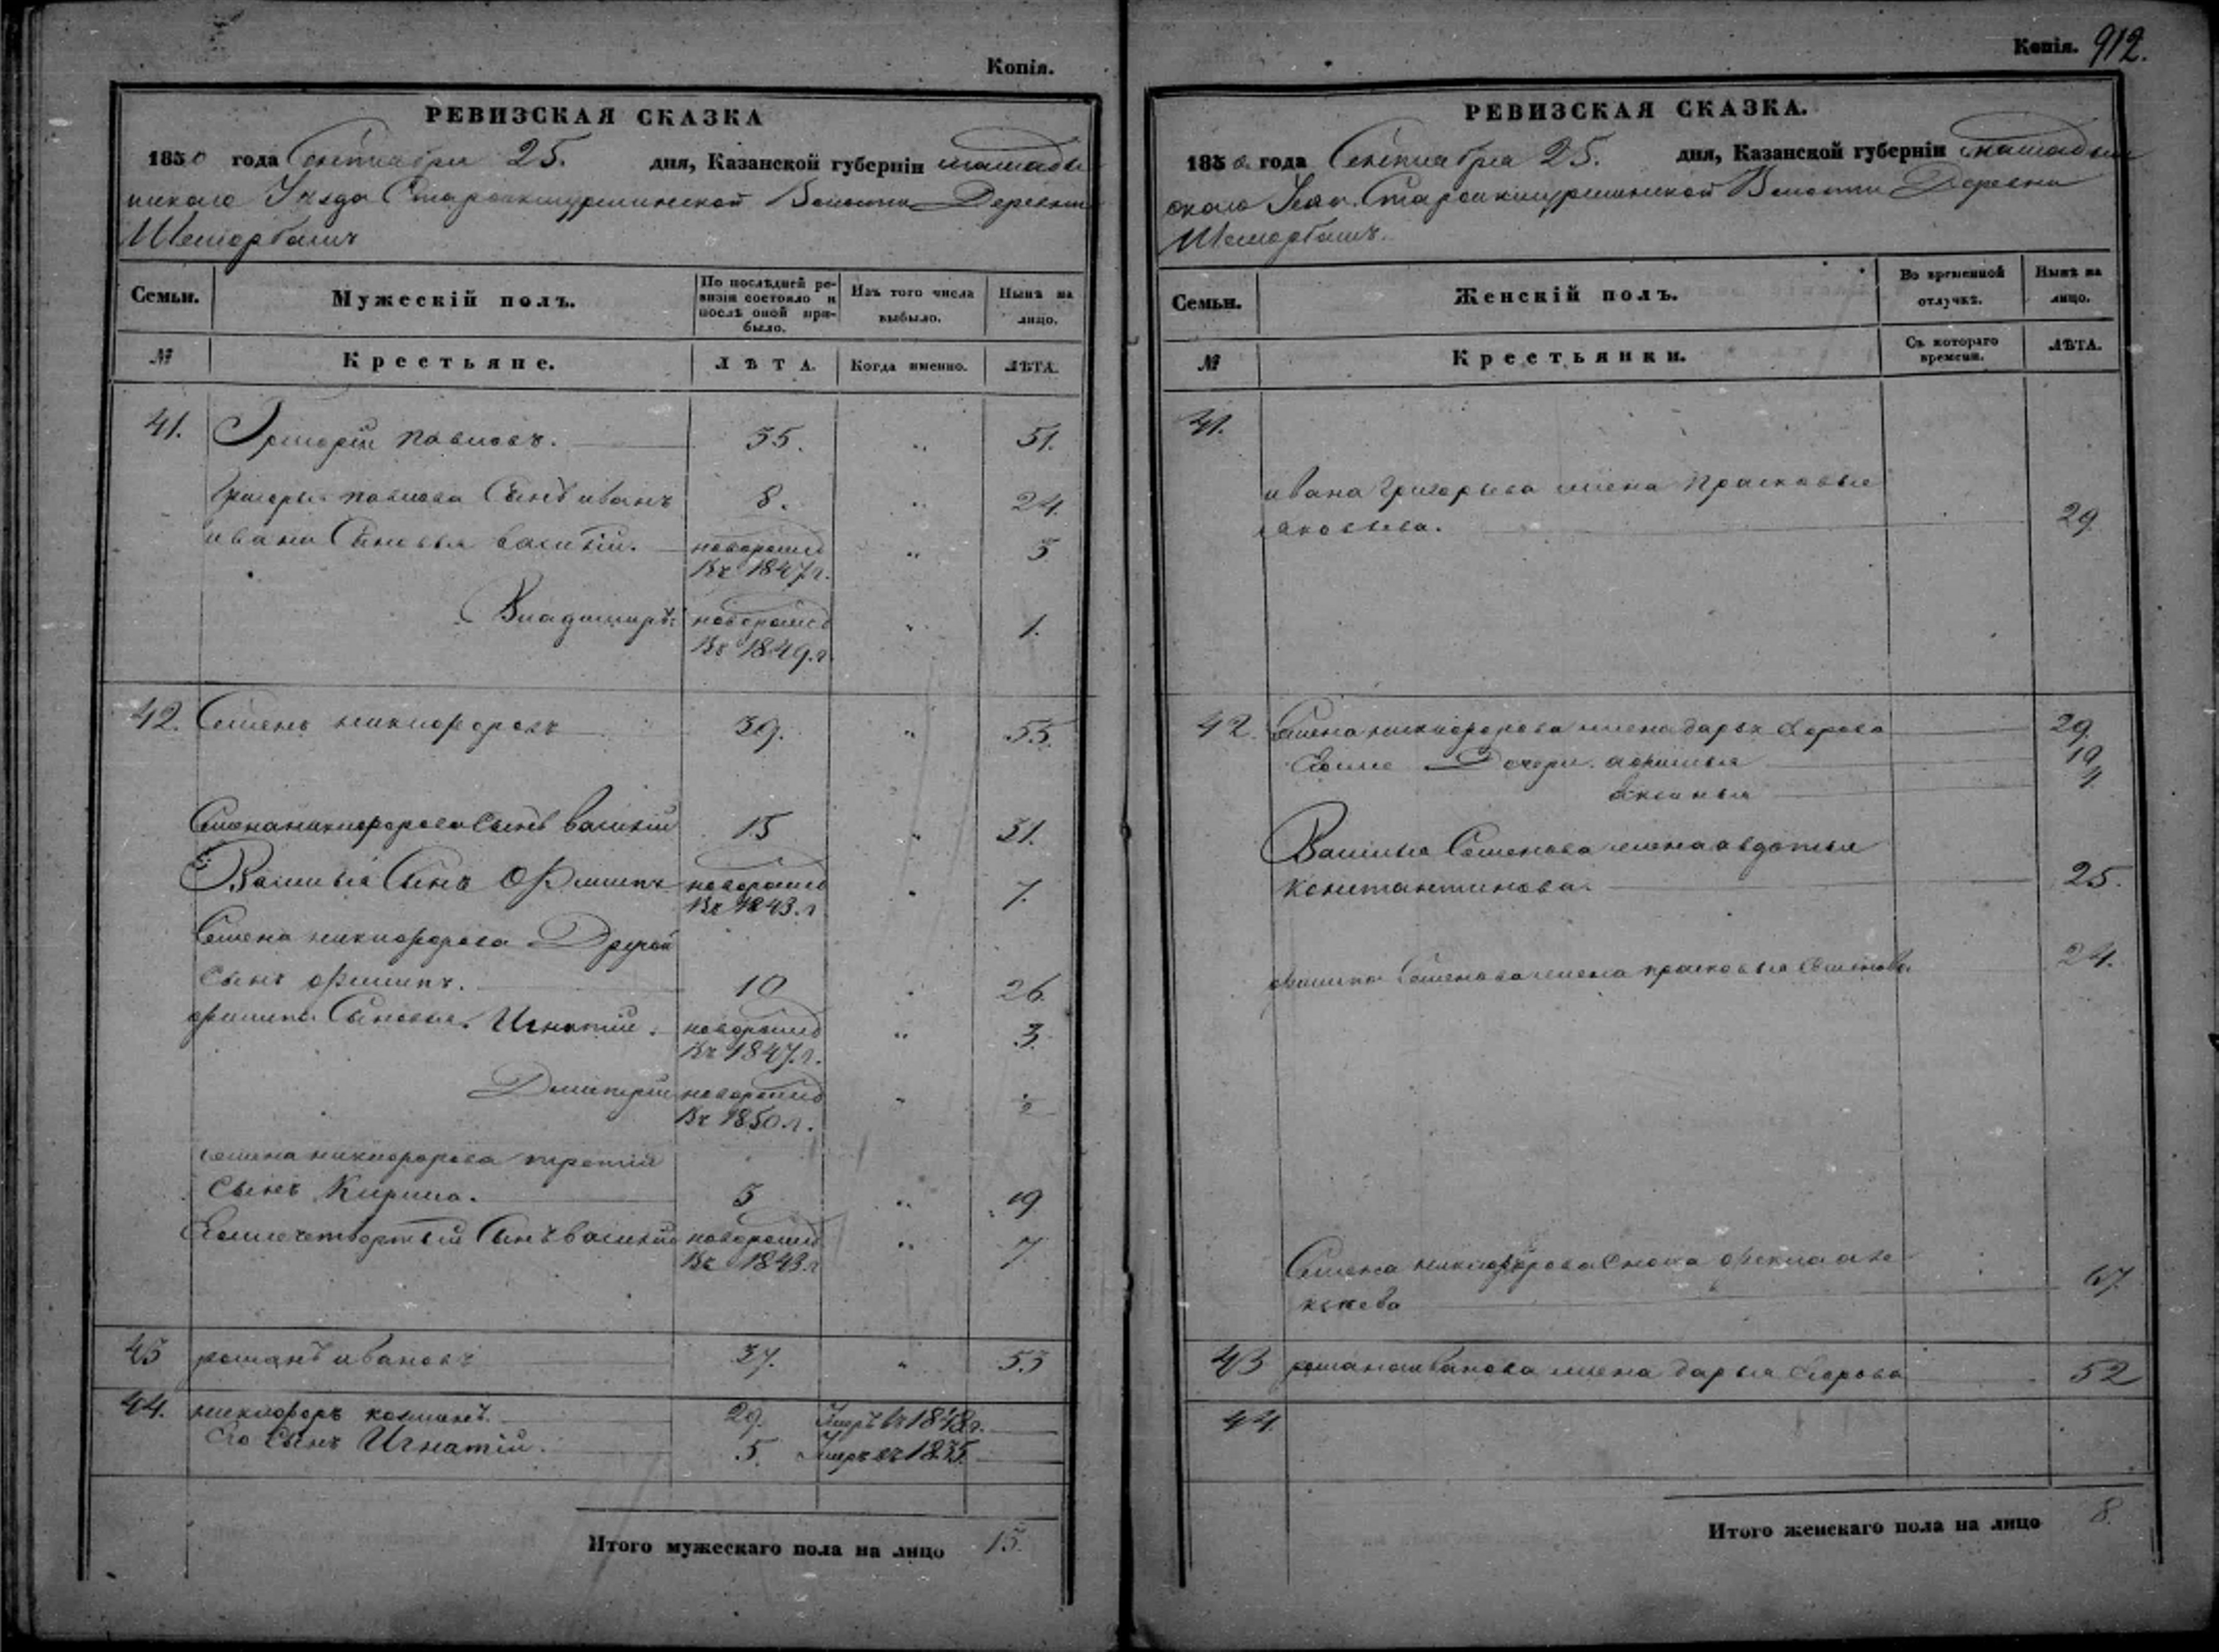 Копія.
РЕВИЗСКАЯ СКАЗКА
1850 года Сентября 25. дня, Казанской губерніи мамады
шскаго Уезда Старокишурминской Волости Деревни
Шеморбашъ
Семьи.
Мужескій полъ.
По послѣдней ре-
визіи состояло и
послѣ оной при-
было.
Изъ того числа
выбыло.
Нынѣ на
лицо.
№
Крестьяне.
ЛѢТА.
Когда именно.
ЛѢТА.
41. Григорій павловъ. 35. „ 51.
Григорья павлова Сынъ иванъ 8. „ 24.
ивана Сыновья василій. новорожд „ 3
Въ 1847.г.
Владимиръ новорожд „ 1.
Въ 1849.г.
42. Семенъ никифоровъ 39. „ 55.
Семена никифорова Сынъ василій 15 „ 31.
Василья Сынъ Филипъ новорожд „ 7.
Въ 1843.г
Семена никифорова Другой
Сынъ филипъ. 10 „ 26.
филипа Сыновья. Игнатій. новорожд „ 3.
Въ 1847.г.
Дмитрій новорожд „ ½
Въ 1850.г.
семена никифорова третій
Сынъ Кирила. 3 „ 19
Егоже четвертый Сынъ василій новорожд „ 7.
Въ 1843.г
43 романъ ивановъ 37. „ 53
44. никифоръ козминъ. 29. Умръ въ 1848г.
его Сынъ Игнатій. 5. Умръ въ 1835.
Итого мужескаго пола на лицо 15.
Копія. 912.
РЕВИЗСКАЯ СКАЗКА.
1850. года Сентября 25. дня, Казанской губерніи мамадыш
скаго Старокишурминской Волости Деревни
Шеморбашъ.
Семьи.
Женскій полъ.
Во временной
отлучкѣ.
Нынѣ на
лицо.
№
Крестьянки.
Съ котораго
времени.
ЛѢТА.
41.
ивана григорьева жена Прасковья
яковлева. 29
42. Семена никифорова жена дарья 29.
Егоже Дочери. 19
аксинья 4.
Василья Семенова жена авдотья
константинова. 25.
филипа Семенова жена прасковья Семенова 24.
Семена никифорова Сноха фекла але
ксѣева
43 романа иванова жена дарья Егорова 52
44.
Итого женскаго пола на лицо 8.